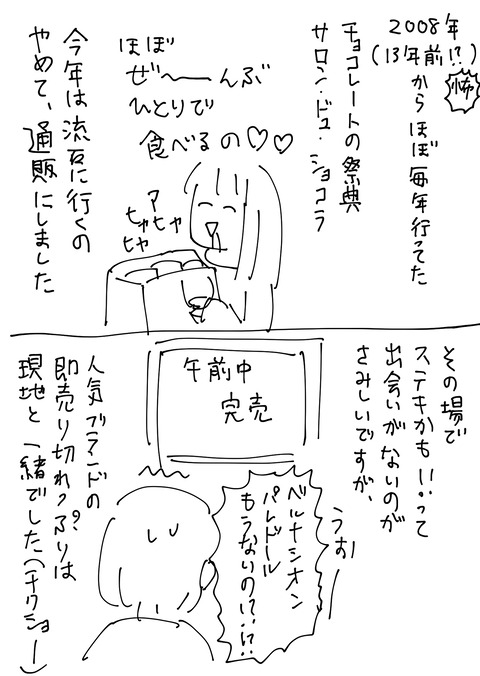 2008年
(13年前!?)
怖
からほぼ毎年行ってた
チョコレートの祭典
サロン・デュ・ショコラ
ほぼ
ぜ〜んぶ
ひとりで
食べるの♡♡
アヒャヒャヒャ
今年は流石に行くの
やめて、通販にしました
その場で
ステキかも!!って
出会いがないのが
さみしいですが、
午前中
完売
うおー
ベルナシオン
パレドール
もうないの!?!?
人気ブランドの
即売り切れっぷりは
現地と一緒でした(チクショー)